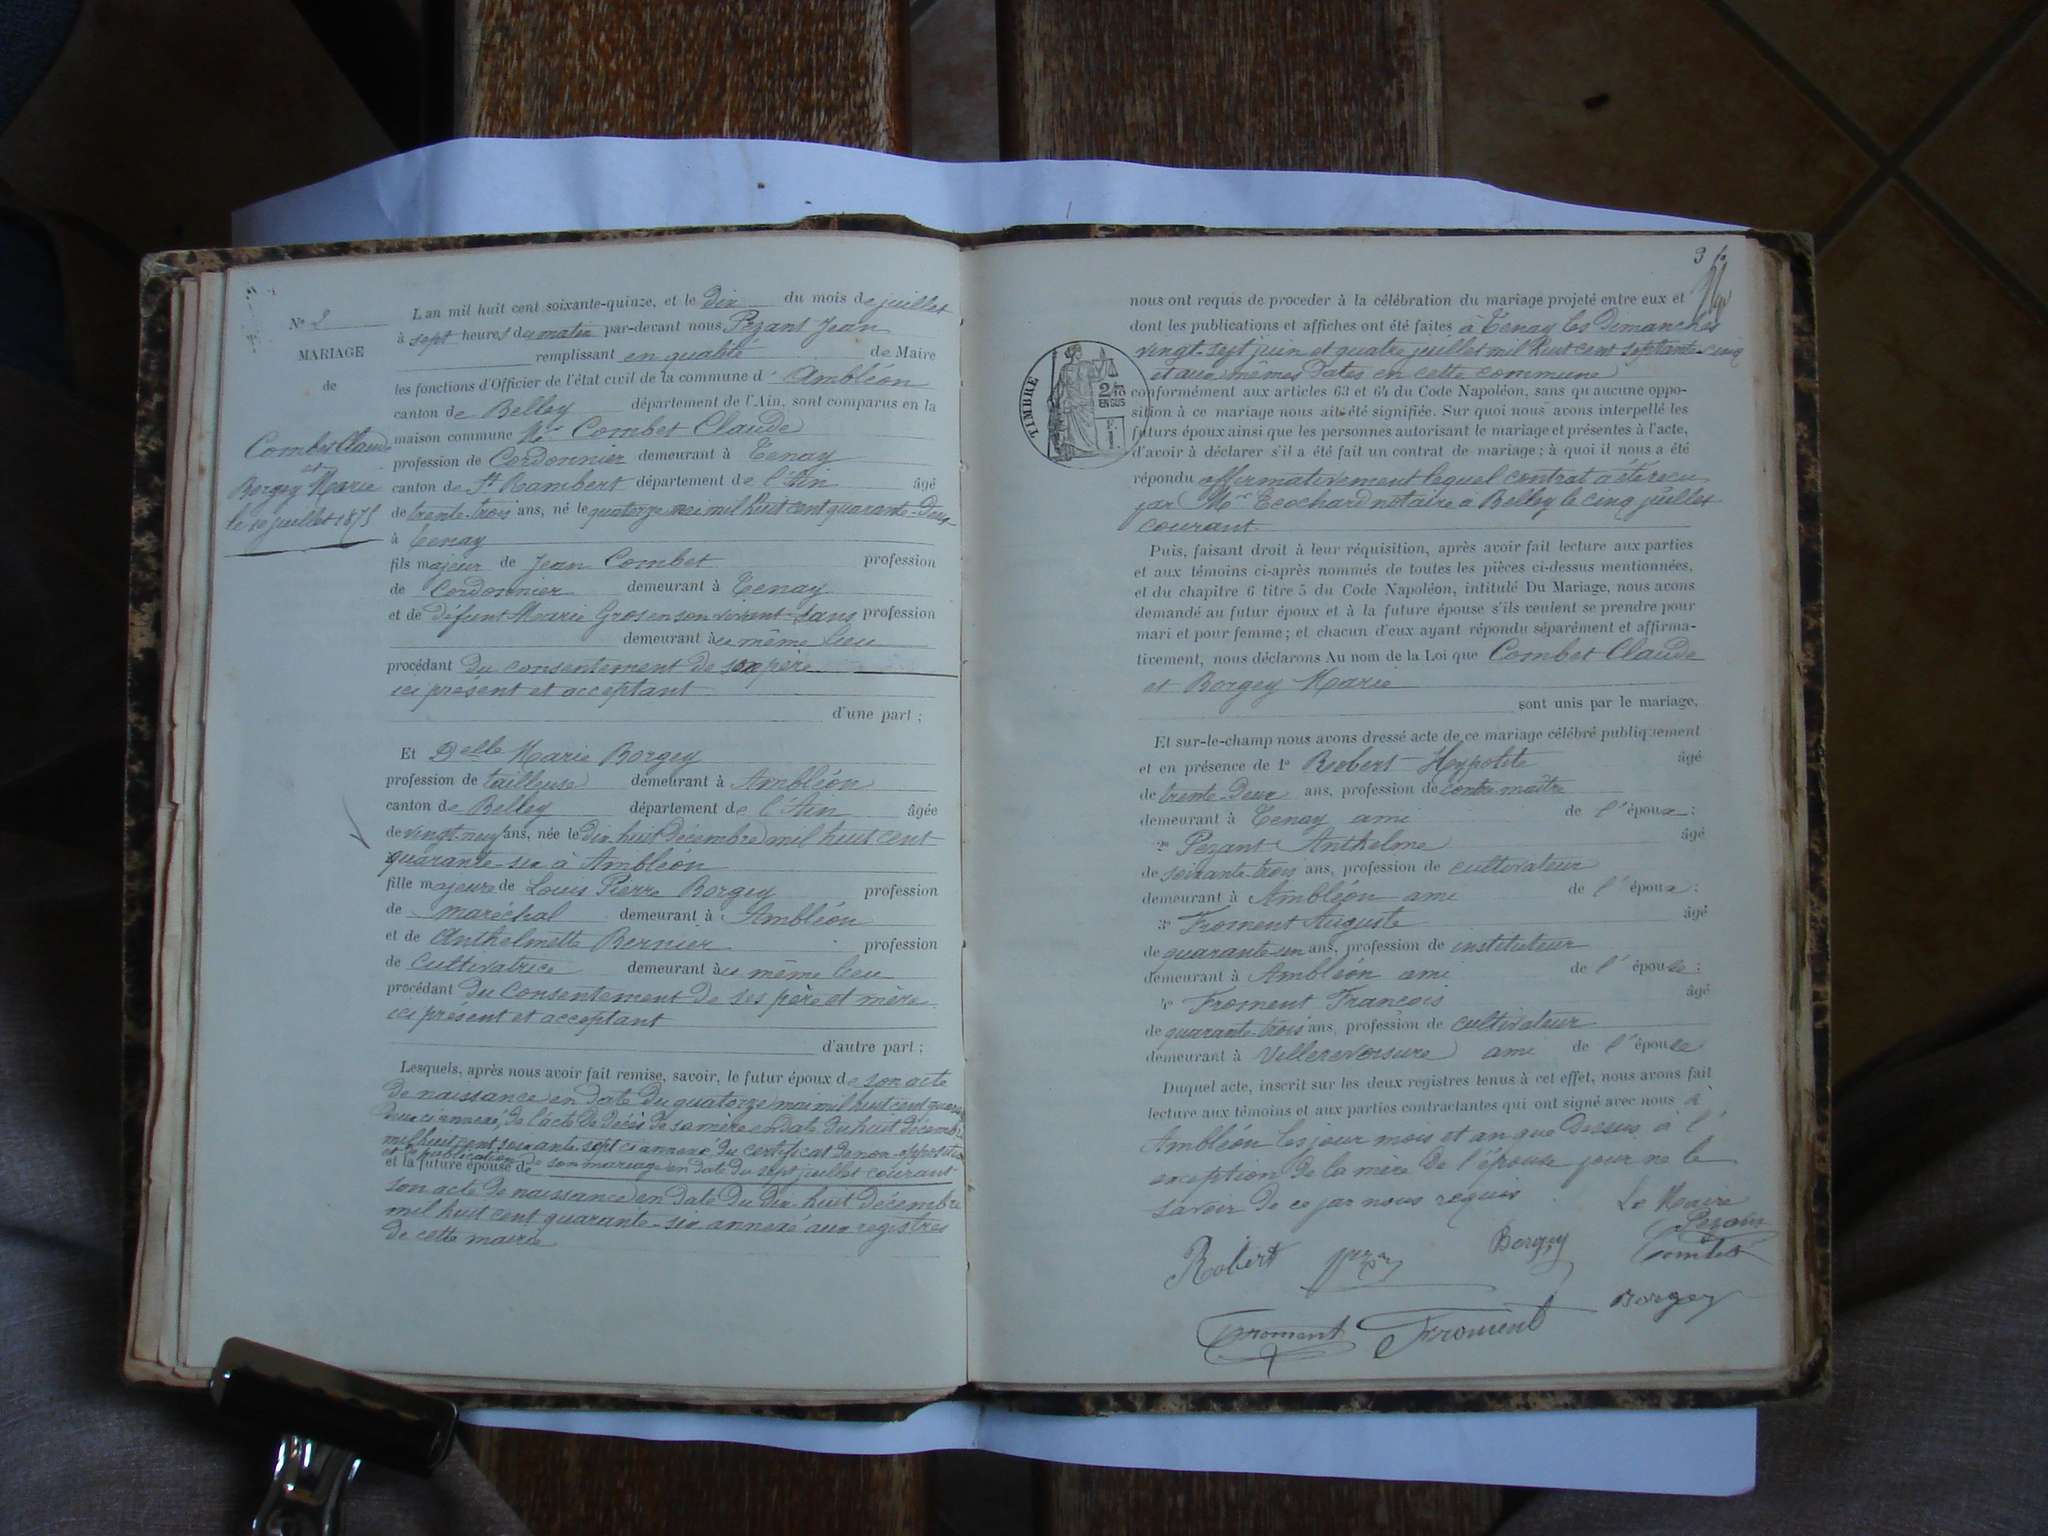 L an mil huit cent soixante-quinze, et le dix du mois de juillet
à sept heures du matin par-devant nous Pezant Jean
remplissant en qualité de Maire
les fonctions d'Officier de l'état civil de la commune d' Ambléon
canton de Belley département de l'Ain, sont comparus en la
maison commune Mr Combet Claude
profession de Cordonnier demeurant à Tenay
canton de St Rambert département de l'Ain âgé
de trente-trois ans, né le quatorze mai mil huit cent quarante-deux
à Tenay
fils majeur de Jean Combet profession
de Cordonnier demeurant à Tenay
et de défunt Marie Gros en son vivant sans profession
demeurant au même lieu
procédant du consentement de son père
ici présent et acceptant
d'une part ;
Et Delle Marie Borgey
profession de tailleuse demeurant à Ambléon
canton de Belley département de l'Ain âgée
de vingt-neuf ans, née le dix-huit décembre mil huit cent
quarante-six à Ambléon
fille majeure de Louis Pierre Borgey profession
de maréchal demeurant à Ambléon
et de Anthelmette Bernier profession
de cultivatrice demeurant au même lieu
procédant du consentement de ses père et mère
ici présent et acceptant
d'autre part ;
Lesquels, après nous avoir fait remise, savoir, le futur époux de son acte
de naissance en date du quatorze mai mil huit cent quarante
deux ci annexé, de l'acte de décès de sa mère en date du huit décembre
mil huit cent soixante-sept ci annexé du certificat de non-opposition
et de publication de son mariage en date du sept juillet courant
et la future épouse de
son acte de naissance en date du dix-huit décembre
mil huit cent quarante-six annexé aux registres
de cette mairie
No 2
MARIAGE
de
Combet Claude
et
Borgey Marie
le 10 juillet 1875
3
nous ont requis de proceder à la célébration du mariage projeté entre eux et
dont les publications et affiches ont été faites à Tenay les dimanches
vingt-sept juin et quatre juillet mil huit cent septante-cinq
et aux mêmes dates en cette commune
conformément aux articles 63 et 64 du Code Napoléon, sans qu'aucune oppo-
sition à ce mariage nous ait été signifiée. Sur quoi nous avons interpellé les
futurs époux ainsi que les personnes autorisant le mariage et présentes à l'acte,
d'avoir à déclarer s'il a été fait un contrat de mariage ; à quoi il nous a été
répondu affirmativement lequel contrat a été reçu
par Me Trochard notaire à Belley le cinq juillet
courant
Puis, faisant droit à leur réquisition, après avoir fait lecture aux parties
et aux témoins ci-après nommés de toutes les pièces ci-dessus mentionnées,
et du chapitre 6 titre 5 du Code Napoléon, intitulé Du Mariage, nous avons
demandé au futur époux et à la future épouse s'ils veulent se prendre pour
mari et pour femme ; et chacun d'eux ayant répondu séparément et affirma-
tivement, nous déclarons Au nom de la Loi que Combet Claude
et Borgey Marie
sont unis par le mariage.
Et sur-le-champ nous avons dressé acte de ce mariage célébré publiquement
et en présence de 1° Robert Hypolite âgé
de trente-deux ans, profession de contre maître
demeurant à Tenay ami de l'époux :
2° Pezant Anthelme âgé
de soixante-trois ans, profession de cultivateur
demeurant à Ambléon ami de l'époux :
3° Froment Auguste âgé
de quarante-un ans, profession de instituteur
demeurant à Ambléon ami de l'épouse :
4° Froment François âgé
de quarante-trois ans, profession de cultivateur
demeurant à Villereversure ami de l'épouse
Duquel acte, inscrit sur les deux registres tenus à cet effet, nous avons fait
lecture aux témoins et aux parties contractantes qui ont signé avec nous à
Ambléon les jour mois et an que dessus à l'
exception de la mère de l'épouse pour ne le
savoir de ce par nous requis
Le Maire
Pezant
Robert Borgey Combet
Borgey
Froment Froment
TIMBRE
2/10
EN SUS